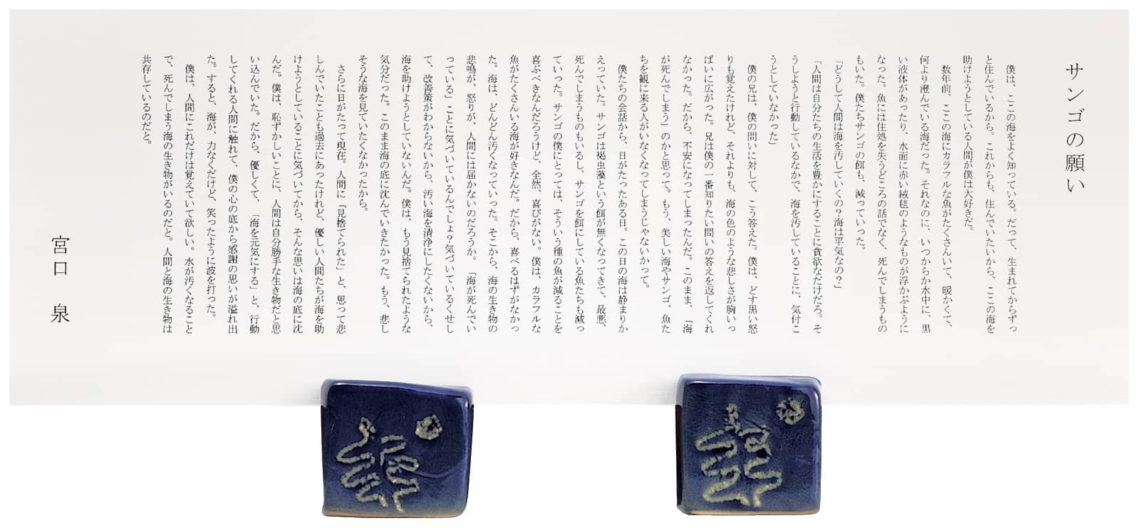 サンゴの願い
僕は、ここの海をよく知っている。だって、生まれてからずっ
と住んでいるから。これからも、住んでいたいから、ここの海を
助けようとしている人間が僕は大好きだ。
数年前、ここの海にカラフルな魚がたくさんいて、暖かくて、
何より澄んでいる海だった。それなのに、いつからか水中に、黒
い液体があったり、水面に赤い絨毯のようなものが浮かぶように
なった。魚には住処を失うどころの話でなく、死んでしまうもの
もいた。僕たちサンゴの餌も、減っていった。
「どうして人間は海を汚していくの?海は平気なの?」
「人間は自分たちの生活を豊かにすることに貪欲なだけだろ。そ
うしようと行動しているなかで、海を汚していることに、気付こ
うとしていなかった」
僕の兄は、僕の問いに対して、こう答えた。僕は、どす黒い怒
りも覚えたけれど、それよりも、海の色のような悲しさが胸いっ
ぱいに広がった。兄は僕の一番知りたい問いの答えを返してくれ
なかった。だから、不安になってしまったんだ。このまま、「海
が死んでしまう」のかと思って。もう、美しい海やサンゴ、魚た
ちを観に来る人がいなくなってしまうじゃないかって。
僕たちの会話から、日がたったある日。この日の海は静まりか
えっていた。サンゴは褐虫藻という餌が無くなってきて、最悪、
死んでしまうものもいるし、サンゴを餌にしている魚たちも減っ
ていった。サンゴの僕にとっては、そういう種の魚が減ることを
喜ぶべきなんだろうけど、全然、喜びがない。僕は、カラフルな
魚がたくさんいる海が好きなんだ。だから、喜べるはずがなかっ
た。海は、どんどん汚くなっていった。そこから、海の生き物の
悲鳴が、怒りが、人間には届かないのだろうか。「海が死んでい
っている」ことに気づいているんでしょ?気づいているくせし
て、改善策がわからないから、汚い海を清浄にしたくないから、
海を助けようとしていないんだ。僕は、もう見捨てられたような
気分だった。このまま海の底に沈んでいきたかった。もう、悲し
そうな海を見ていたくなかったから。
さらに日がたって現在。人間に「見捨てられた」と、思って悲
しんでいたことも過去にあったけれど、優しい人間たちが海を助
けようとしていることに気づいてから、そんな思いは海の底に沈
んだ。僕は、恥ずかしいことに、人間は自分勝手な生き物だと思
い込んでいた。だから、優しくて、「海を元気にする」と、行動
してくれる人間に触れて、僕の心の底から感謝の思いが溢れ出
た。すると、海が、力なくだけど、笑ったように波を打った。
僕は、人間にこれだけは覚えていて欲しい。水が汚くなること
で、死んでしまう海の生き物がいるのだと。人間と海の生き物は
共存しているのだと。
宮口 泉